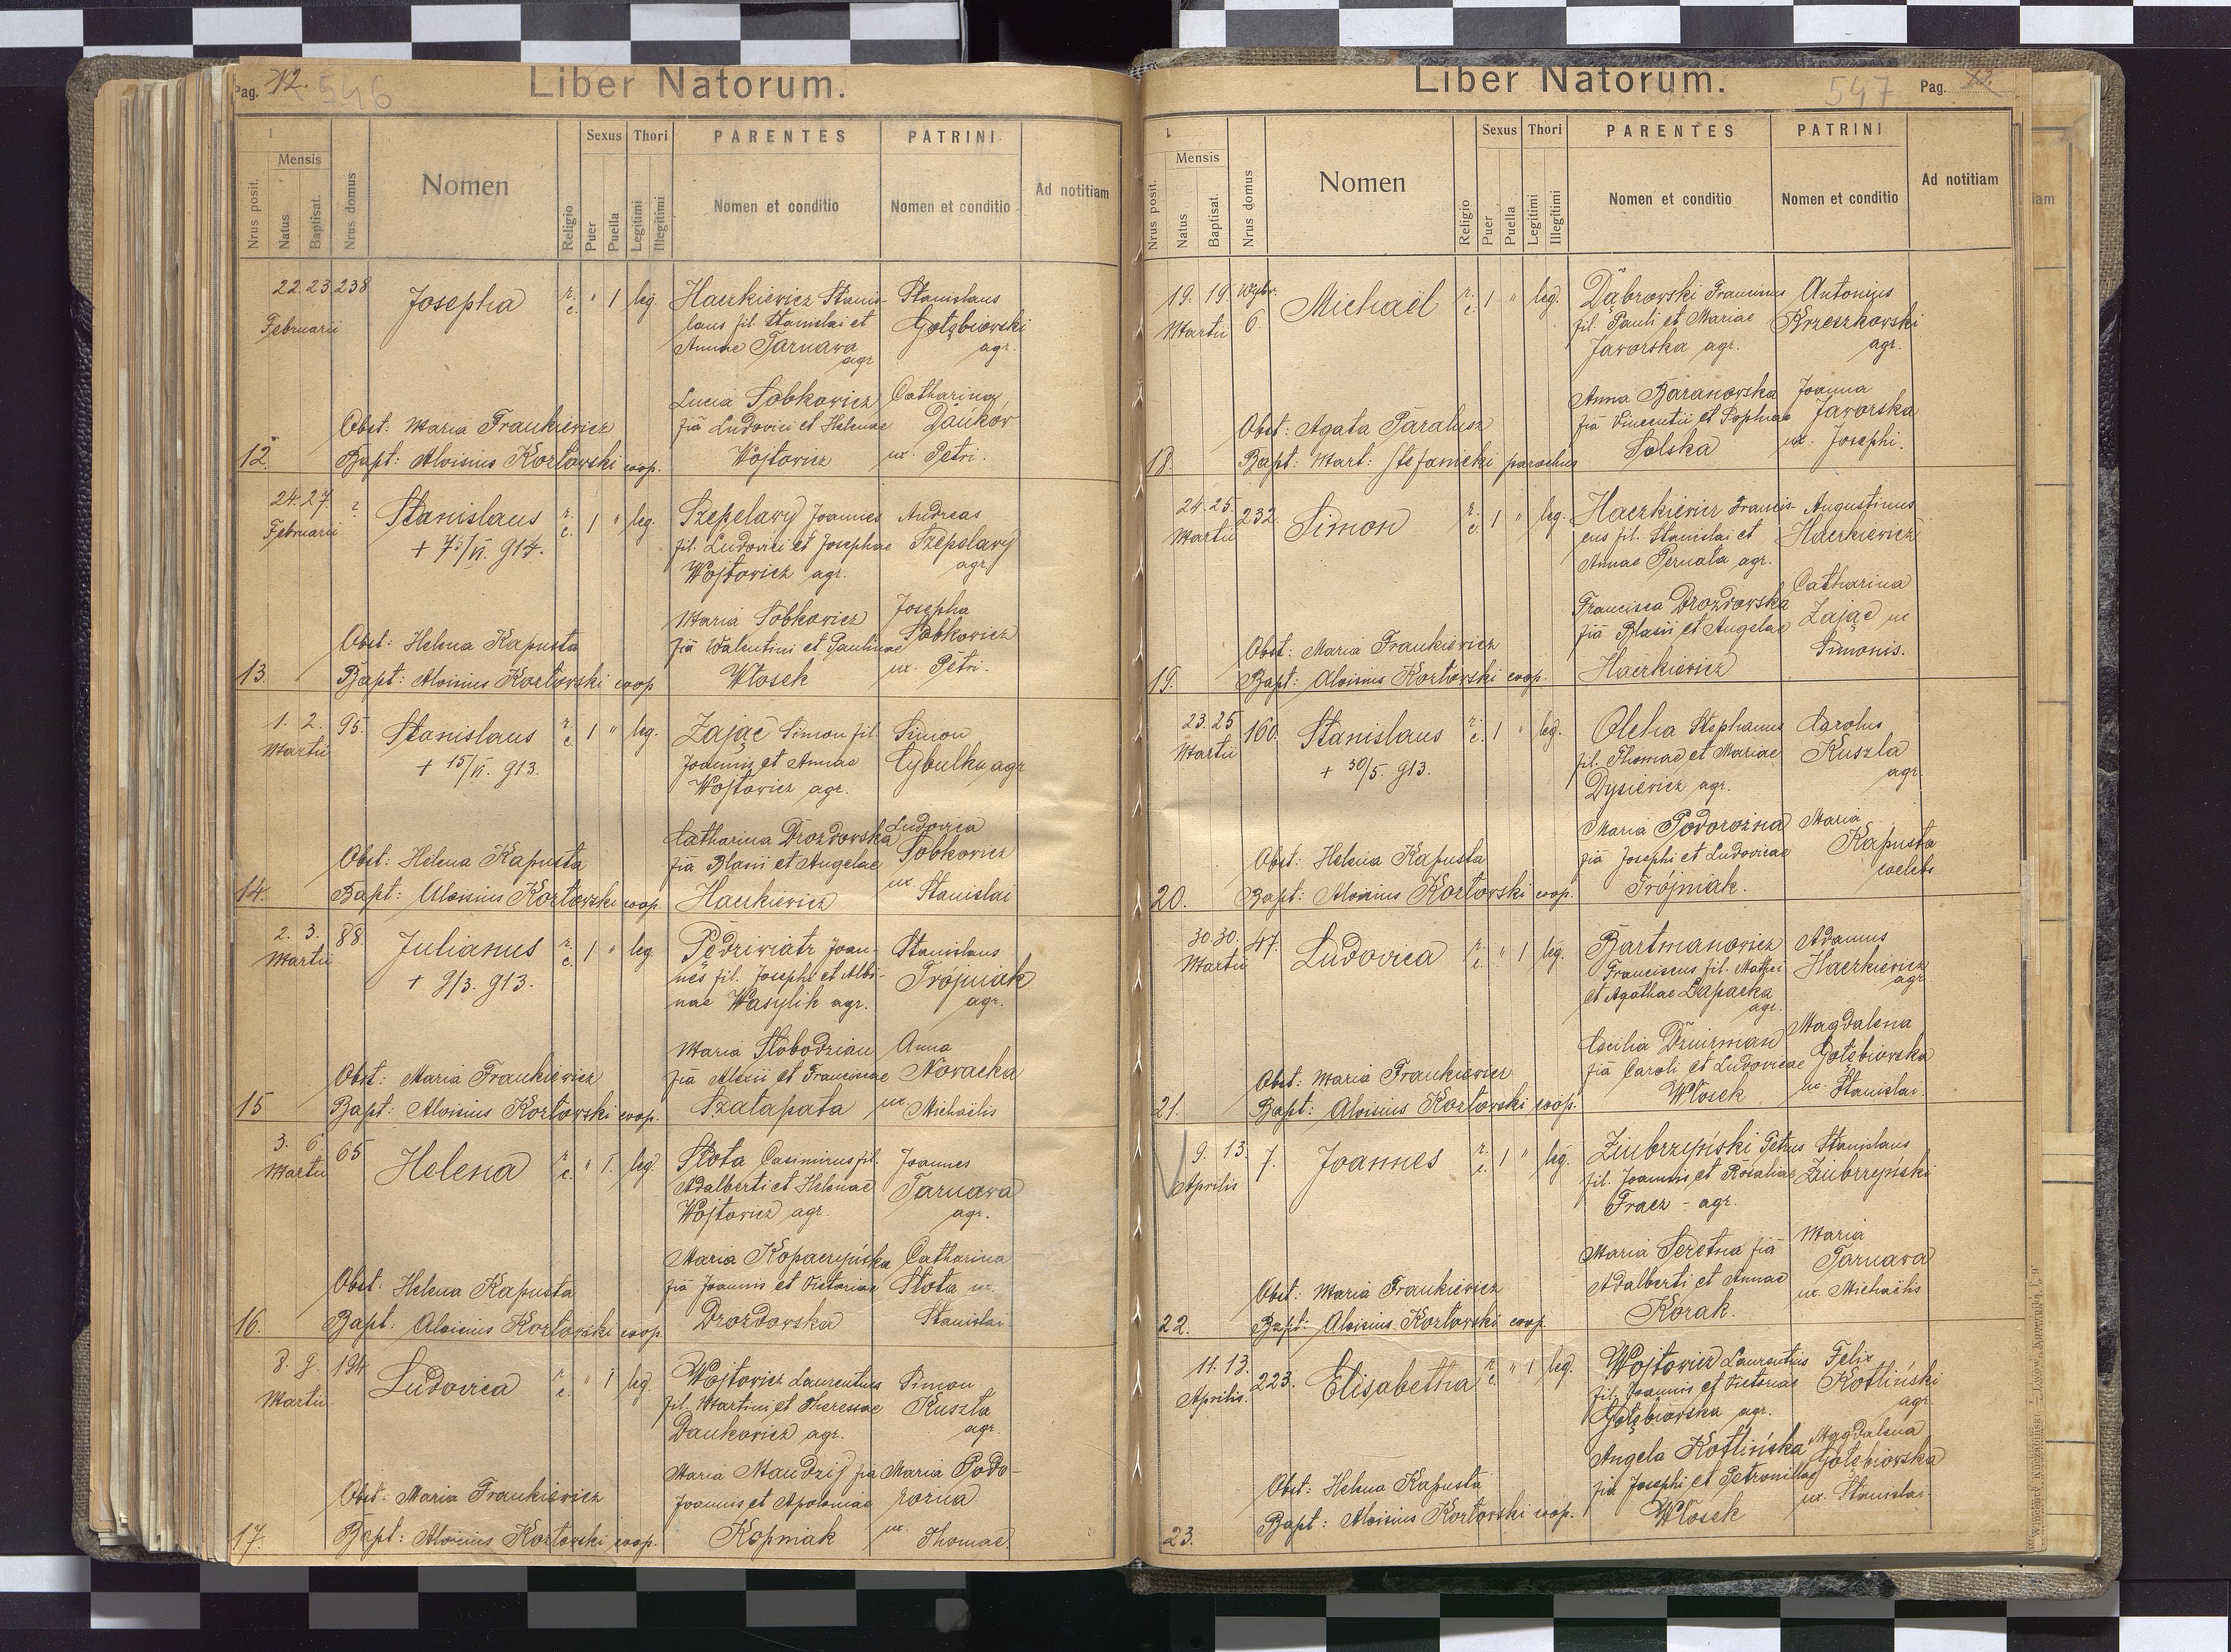 Pag. 12. 546
Liber Natorum.
1
Nrus posit.
Mensis
Natus
Baptisat.
Nrus domus
Nomen
Religio
Sexus
Puer
Puella
Thori
Legitimi
Illegitimi
PARENTES
Nomen et conditio
PATRINI
Nomen et conditio
Ad notitiam
12.
22. 23 238
Februarii
Josepha
r. c. " 1 leg.
Haczkiewicz Stanis-
laus fil. Stanislai et
Annae Tarnawa
agr
Lucia Sobkowicz
fia Ludovici et Helenae
Wojtowicz
Stanislaus
Gołębiowski
agr.
Catharina
Dańków
ux. Petri.
Obst: Maria Frankiewicz
Bapt: Aloisius Kozłowski coop.
13.
24. 27. ?
Februarii
Stanislaus
r. c. 1 " leg.
Szepelawy Joannes
fil. Ludovici et Josephae
Wojtowicz agr.
Maria Sobkowicz
fia Valentini et Paulinae
Włosek
Andreas
Szepelawy
agr
Josepha
Sobkowicz
ux. Petri.
Obst: Helena Kapusta
Bapt: Aloisius Kozłowski coop
14.
1. 2. 95.
Martii
Stanislaus
+ 15/VI. 913.
r. c. 1 " leg.
Zając Simon fil.
Joannis et Annae
Wojtowicz agr.
Catharina Drozdowska
fia Blasii et Angelae
Haczkiewicz
Simon
Cybulka agr
Ludovica
Sobkowicz
ux. Stanislai
Obst: Helena Kapusta
Bapt: Aloisius Kozłowski coop.
15
2. 3. 88.
Martii
Julianus
+ 9/3. 913.
r. c. 1 " leg.
Pędziwiatr Joan-
nes fil. Josephi et Albi-
nae Wasylik agr.
Maria Słobodzian
fia Alexii et Franciscae
Szałapata
Stanislaus
Trójniak
agr.
Anna
Nowacka
ux. Michaëlis
Obst: Maria Frankiewicz
Bapt: Aloisius Kozłowski coop.
16.
3. 6 65
Martii
Helena
r c. " 1. leg.
Słota Casimirus fil.
Adalberti et Helenae
Wojtowicz agr.
Maria Kopaczyńska
fia Joannis et Victoriae
Drozdowska
Joannes
Tarnawa
agr.
Catharina
Słota ux.
Stanislai.
Obst: Helena Kapusta
Bapt: Aloisius Kozłowski coop.
17.
8. 9. 194
Martii
Ludovica
r c. " 1 leg.
Wojtowicz Laurentius
fil. Martini et Theresiae
Dankowicz agr.
Maria Maudzij fia
Joannis et Apoloniae
Kopniak
Simon
Kuszla
agr.
Maria Podo-
rożna
ux. Thomae.
Obst: Maria Frankiewicz
Bapt: Aloisius Kozłowski coop.
Liber Natorum.
547 Pag.
1.
Nrus posit.
Mensis
Natus
Baptisat.
Nrus domus
Nomen
Religio
Sexus
Puer
Puella
Thori
Legitimi
Illegitimi
PARENTES
Nomen et conditio
PATRINI
Nomen et conditio
Ad notitiam
18.
19. 19. 6.
Martii
Michaël
r. c. 1 " leg.
Dąbrowski Franciscus
fil. Pauli et Mariae
Jaworska agr.
Anna Baranowska
fia Vincentii et Sophiae
Solska
Antonius
Krzeszkowski
agr.
Joanna
Jaworska
ux. Josephi.
Obst: Agata Paralusz
Bapt: Mart: Stefanicki parochus
19.
24. 25. 232.
Martii
Simon
r. c. 1 " leg.
Haczkiewicz Francis-
cus fil. Stanislai et
Annae Pernata agr.
Francisca Drozdowska
fia Blasii et Angelae
Haczkiewicz
Augustinus
Haczkiewicz
Catharina
Zając ux
Simonis.
Obst: Maria Frankiewicz
Bapt: Aloisius Kozłowski coop.
20.
23. 25 160.
Martii
Stanislaus
+ 30/5. 913.
r. c. 1 " leg.
Olcha Stephanus
fil. Thomae et Mariae
Dysiewicz agr.
Maria Podorożna
fia Josephi et Ludovicae
Trójniak.
Carolus
Kuszla
agr.
Maria
Kapusta
coelebs
Obst: Helena Kapusta
Bapt: Aloisius Kozłowski coop.
21.
30. 30. 47.
Martii
Ludovica
r. c. " 1 leg.
Bartmanowicz
Franciscus fil. Mathei
et Agathae Łapacka
agr.
Cecilia Dziurman
fia Caroli et Ludovicae
Włosek
Adamus
Haczkiewicz
agr
Magdalena
Gołębiowska
ux. Stanislai.
Obst: Maria Frankiewicz
Bapt: Aloisius Kozłowski coop.
22.
9. 13. 7.
Aprilis
Joannes
r. c. 1 " leg.
Ziubrzyński Petrus
fil. Joannis et Rosaliae
Fracz - agr.
Maria Seretna fia
Adalberti et Annae
Korak.
Stanislaus
Ziubrzyński
Maria
Tarnawa
ux. Michaëlis
Obst: Maria Frankiewicz
Bapt: Aloisius Kozłowski coop
23.
11. 13. 223.
Aprilis.
Elisabetha
r c. " 1 leg.
Wojtowicz Laurentius
fil. Joannis et Victoriae
Gołębiowska agr.
Angela Kotlińska
fia Josephi et Petronillae
Włosek
Felix
Kotliński
agr.
Magdalena
Gołębiowska
ux. Stanislai.
Obst: Helena Kapusta
Bapt: Aloisius Kozłowski coop.